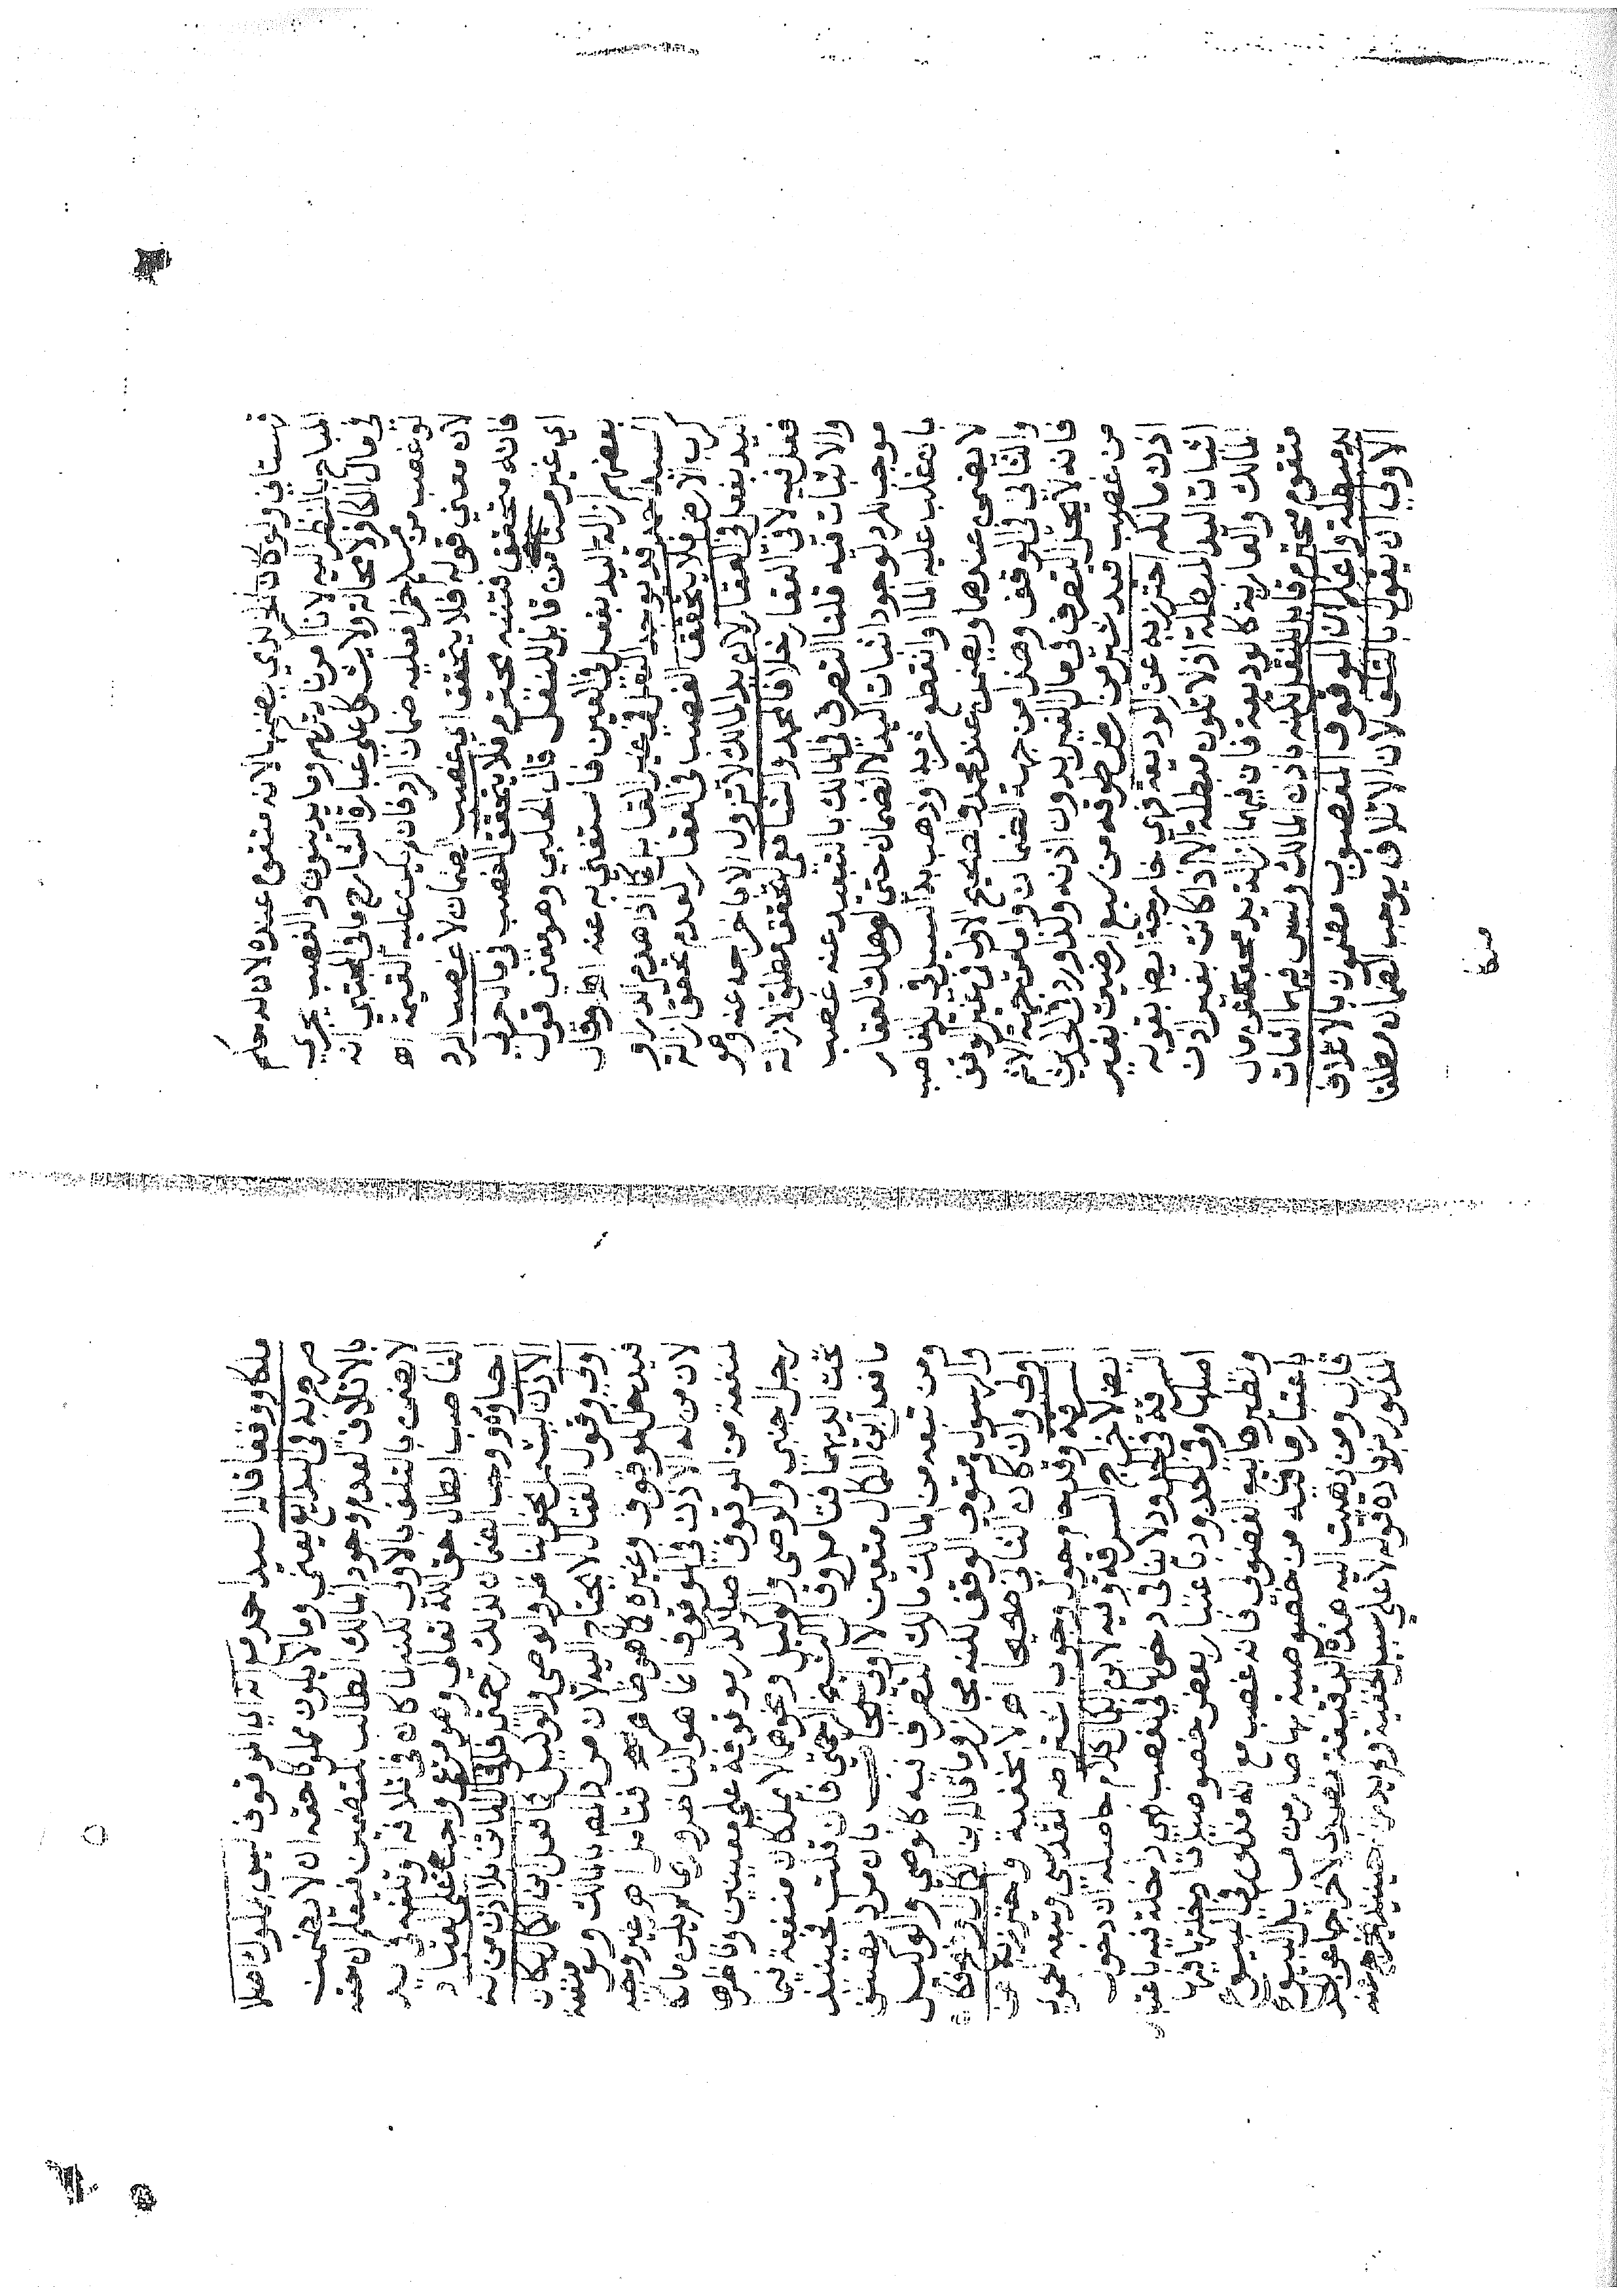 قهستاني ولو كان الخمر لذمي يضمنها لانه متقوم عنده لان له حكم
المباح بالنظر اليه لانا امرنا بتركهم وما يدينون والغصب يجري
في مال الكافر لا محالة ولا يشكل على عبارة الشارح ما في المجتبى انه
لو غصب من مسلم خمرا فعليه ضمان الرد فان لم يكن عليه القيمة اه
لان معنى قوله فلا يتحقق اي غصب الضمان لا غصب الرد
فانه متحقق فتنبه محترم فلا يتحقق الغصب في مال حربي
اي غير مستامن قابل للنقل قال الحلبي وهو معنى قول
بعضهم ازالة اليد بفعل في العين فاستغني به عنه اه وقال
السيد احمد قد يوجد النقل في غير القابل كما اذا هدم الدار او
كرب الارض فلا يتحقق الغصب في العقار لعدم تحقق ازالة
اليد بفعل في العقار لان يد المالك لا تزول الا باخراجه عنه وهو
فعل فيه لا في العقار خلافا لمحمد والشافعي لتحقق مطلق الازالة
والاثبات فيه قلنا التصرف في المالك بالتبعيد عنه غصب
موجب للرد لوجود اثبات اليد لا الضمان حتى لو هلك العقار
بان غلب عليه الماء وانقطع شربه وذهب به السيل في يد الغاصب
لا يضمن عندهما ويضمن عند محمد والصحيح الاول في غير الوقف
والثاني في الوقف وهذا من جهة الضمان واما من جهة الاثم
فانه لا يحل التصرف في مال الغير بدون اذنه ولذا ورد في الحديث
من غصب قيد شبر من ارض طوقه من سبع ارضين بغير
اذن مالكه احترز به عن الوديعة فهي خارجة ايضا بقوله
اثبات اليد المبطلة اذ لا تكون مبطلة الا اذا كانت بغير اذن
المالك والعارية كالوديعة فان فيهما ازالة يد محقة عن مال
متقوم محترم قابل للنقل لكنه باذن المالك وليس فيهما اثبات
يد مبطلة واعلم ان الموقوف المغصوب مضمون بالاتلاف
الاولى ان يقول بالتلف لان الاتلاف يوجب الضمان مطلقا
ملكا
ملكا ووقفا افاده السيد احمد مع انه اي الموقوف ليس بمملوك اصلا
صرح به في البدايع يعني وما لا يكون مملوكا حقه ان لا يضمن
بالاتلاف لعدم وجود المالك الطالب للتضمين فتعلم ان حقه
لا يضمن بالتلف بالاولى لكنه لما كان في اتلافه او تلفه في يد
الغاصب ابطال حق الله تعالى وهو مرعي واجب على العباد
احياؤه وجب الضمان لذلك رحمتي فلو قال بلا اذن من له
الاذن ليشمل نحو الناظر والوصي والوكيل كما فعل ابن الكمال لكان
اولى وقول الفتال لا يحتاج اليه لان من قام مقام المالك
فيدخل الموقوف وغيره كما هو ظاهر فتامل اه غير وجيه
لان من له الاذن في الموقوف انما هو الناظر وهو ليس مالك
لمنفعة من الموقوف اصلا كدار موقوفة على معينين وناظرها
رجل اجنبي والوصي والوكيل ونحوهما لا يملكان منفعة فيما
تحت ايديهما فتامل وقال الشيخ الرحمتي فان قلت فحينئذ
ما فعل ابن الكمال متعين لا اولى بان مراد المصنف
ومن تبعه من المالك مالك التصرف فيه كالوصي والوكيل
والرسول ومتولي الوقف لكنه مجاز وما قاله ابن الكمال حقيقة فكان
اولى وان كان الثاني صحيحا اه لا بخفية واحترز به عن
السرقة وقد حام حول وجوب اشتراطه المقدسي وتبعه نحوه
ايضا لاخراج السرقة وفيه لابن الكمال كلام حاصله ان دخول
السرقة في الحدود لا ينافي دخولها في الغصب فهي داخلة فيه باعتبار
اصلها وفي الحدود باعتبار بعض خصوصياتها
ونظيرها بيع الفضولي فانه غصب مع انه مذكور في البيوع
باعتبار ما فيه من خصوصية بها صار من مسايل البيوع
قال ومن ذهبت اليه هذه الدقيقة تصدى لاخراجها عن الحد
المذكور بزيادة قوله لا على سبيل الخفية